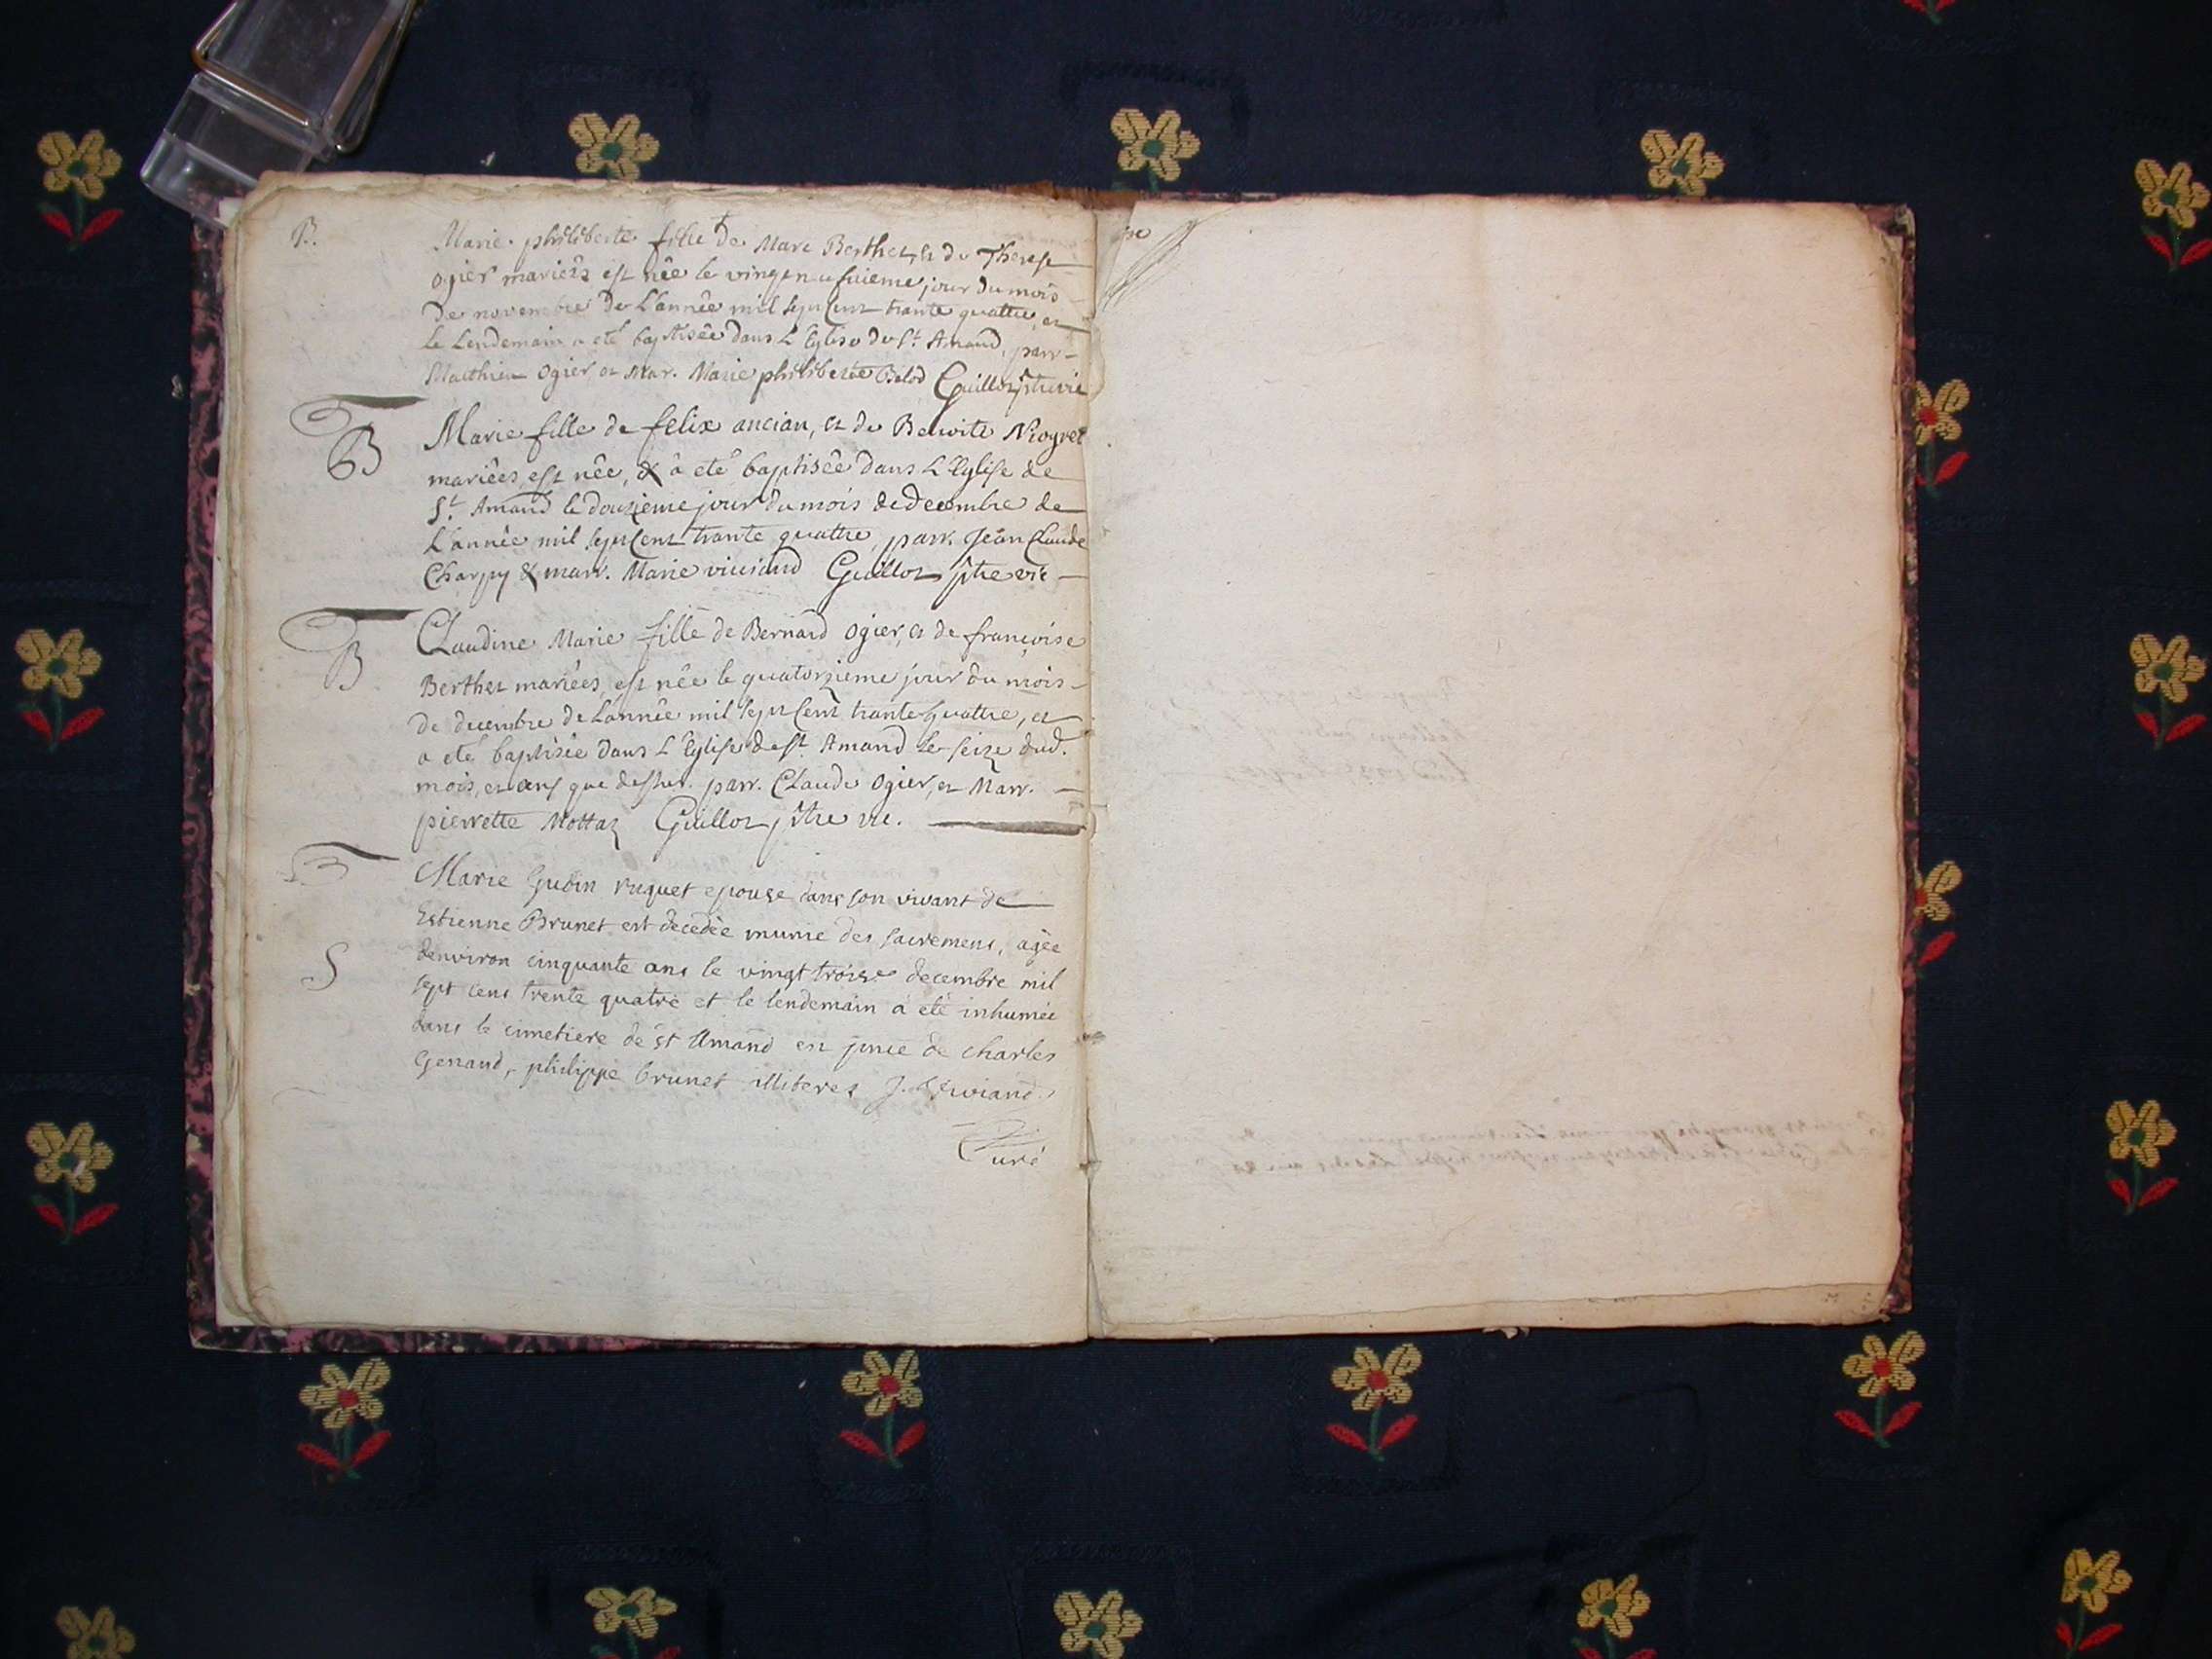 B.
Marie philiberte fille de Marc Berthet, et de Therese
ogier mariées est née le vingt neufuieme jour du mois
de novembre de L'année mil sept cent trante quattre, et
le Lendemain a eté baptisée dans L'Eglise de St Amand, parr.
Matthieu ogier, et Mar. Marie philiberte Belod Guillot ptre vic
B
Marie fille de felix ancian, et de Benoite
mariées, est née, & a eté baptisée dans L'Eglise de
St Amand le douzieme jour du mois de decembre de
L'année mil sept cent trante quattre, parr. Jean Claude
Charpy & marr. Marie viuiand Guillot ptre vic
B
Claudine Marie fille de Bernard ogier, et de françoise
Berthet mariées, est née le quatorzieme jour du mois
de decembre de L'année mil sept cent trante quattre, et
a eté baptisée dans L'Eglise de St Amand le seize dud.
mois, et ans que dessus. parr. Claude ogier, et Marr.
pierrette Mottaz Guillot ptre vic.
S
Marie Gudin epouse dans son vivant de
Estienne Brunet est decedée munie des sacremens, agée
denviron cinquante ans le vingt trois decembre mil
sept cens trente quatre et le lendemain a eté inhumée
dans le cimetiere de st Amand en pnce de charles
Genaud, philippe brunet illiteres J. viviand
Curé